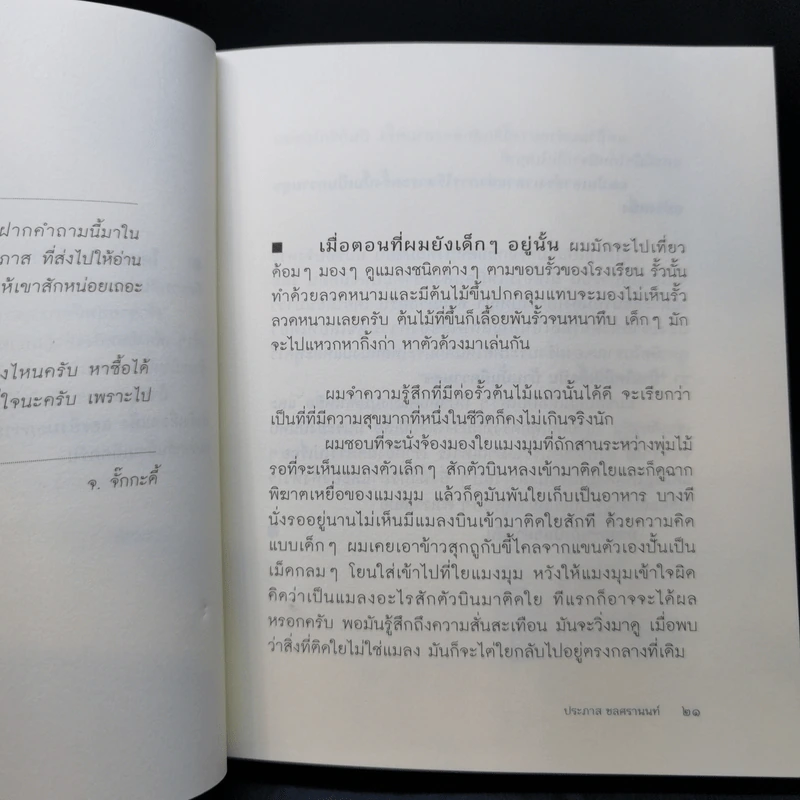 ฝากคำถามนี้มาใน
ภาส ที่ส่งไปให้อ่าน
ห้เขาสักหน่อยเถอะ
งไหนครับ หาซื้อได้
ใจนะครับ เพราะไป
จ. จั๊กกะดี้
■ เมื่อตอนที่ผมยังเด็กๆ อยู่นั้น ผมมักจะไปเที่ยว
ด้อมๆ มองๆ ดูแมลงชนิดต่างๆ ตามขอบรั้วของโรงเรียน รั้วนั้น
ทำด้วยลวดหนามและมีต้นไม้ขึ้นปกคลุมแทบจะมองไม่เห็นรั้ว
ลวดหนามเลยครับ ต้นไม้ที่ขึ้นก็เลื้อยพันรั้วจนหนาทึบ เด็กๆ มัก
จะไปแหวกหากิ้งก่า หาตัวด้วงมาเล่นกัน
ผมจำความรู้สึกที่มีต่อรั้วต้นไม้แถวนั้นได้ดี จะเรียกว่า
เป็นที่ที่มีความสุขมากที่หนึ่งในชีวิตก็คงไม่เกินจริงนัก
ผมชอบที่จะนั่งจ้องมองใยแมงมุมที่ถักสานระหว่างพุ่มไม้
รอที่จะเห็นแมลงตัวเล็กๆ สักตัวบินหลงเข้ามาติดใยและก็ดูฉาก
พิฆาตเหยื่อของแมงมุม แล้วก็ดูมันพันใยเก็บเป็นอาหาร บางที
นั่งรออยู่นานไม่เห็นมีแมลงบินเข้ามาติดใยสักที ด้วยความคิด
แบบเด็กๆ ผมเคยเอาข้าวสุกถูกับขี้ไคลจากแขนตัวเองปั้นเป็น
เม็ดกลมๆ โยนใส่เข้าไปที่ใยแมงมุม หวังให้แมงมุมเข้าใจผิด
คิดว่าเป็นแมลงอะไรสักตัวบินมาติดใย ทีแรกก็อาจจะได้ผล
หรอกครับ พอมันรู้สึกถึงความสั่นสะเทือน มันจะวิ่งมาดู เมื่อพบ
ว่าสิ่งที่ติดใยไม่ใช่แมลง มันก็จะไต่ใยกลับไปอยู่ตรงกลางที่เดิม
ประภาส ชลศรานนท์ ๒๑